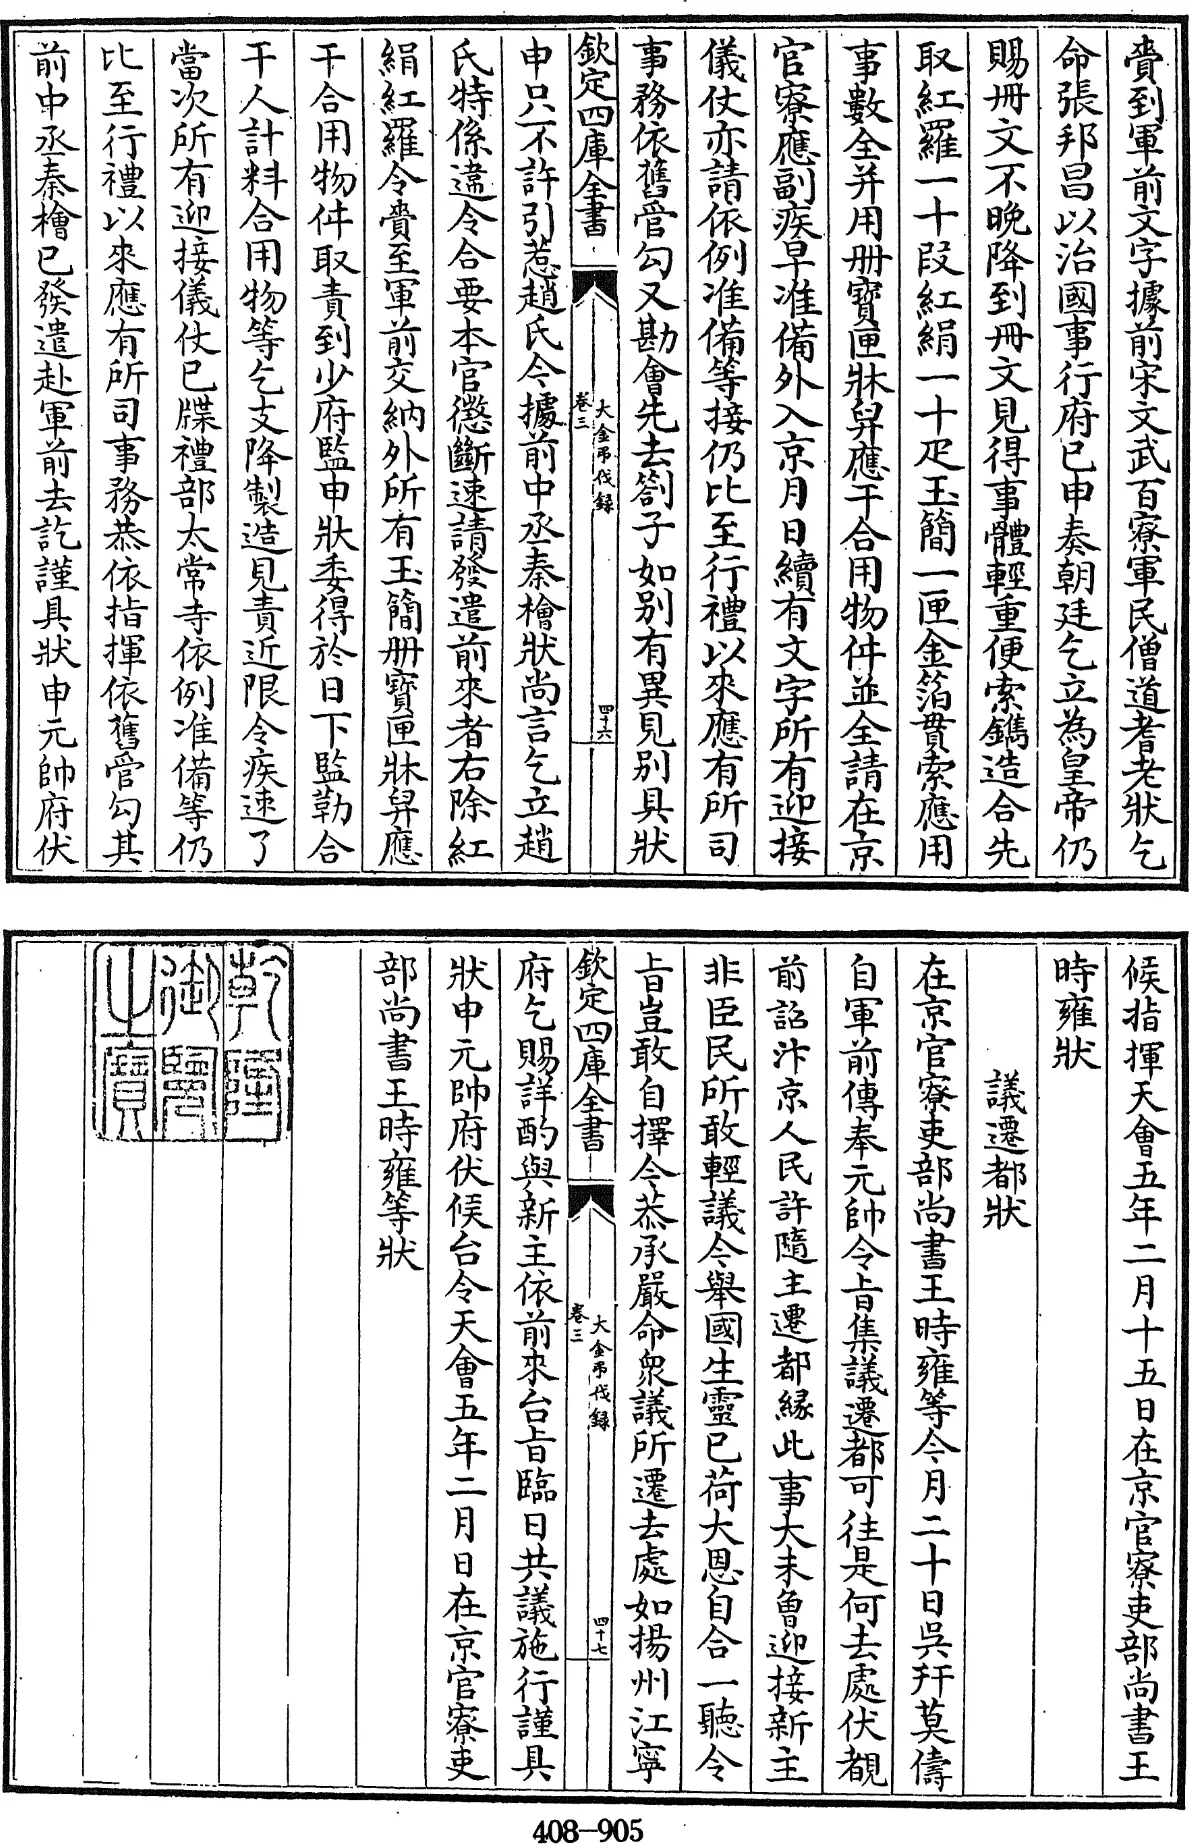 賫到軍前文字據前宋文武百寮軍民僧道耆老狀乞
命張邦昌以治國事行府已申奏朝廷乞立為皇帝仍
賜冊文不晚降到冊文見得事體輕重便索鐫造合先
取紅羅一十段紅絹一十疋玉簡一匣金箔貫索應用
事數全并用册寶匣牀舁應干合用物件並全請在京
官寮應副疾早准備外入京月日續有文字所有迎接
儀仗亦請依例准備等接仍比至行禮以來應有所司
事務依舊管勾又勘會先去劄子如别有異見别具狀
欽定四庫全書
大金弔伐録
卷三
四十六
申只不許引惹趙氏今據前中丞秦檜狀尚言乞立趙
氏特係違令合要本官懲斷速請發遣前來者右除紅
絹紅羅令賫至軍前交納外所有玉簡册寶匣牀舁應
干合用物件取責到少府監申狀委得於日下監勒合
干人計料合用物等乞支降製造見責近限令疾速了
當次所有迎接儀仗已牒禮部太常寺依例准備等仍
比至行禮以來應有所司事務恭依指揮依舊管勾其
前中丞秦檜已發遣赴軍前去訖謹具狀申元帥府伏
候指揮天會五年二月十五日在京官寮吏部尚書王
時雍狀
議遷都狀
在京官寮吏部尚書王時雍等今月二十日吳幵莫儔
自軍前傳奉元帥令旨集議遷都可往是何去處伏覩
前詔汴京人民許隨主遷都緣此事大未曾迎接新主
非臣民所敢輕議今舉國生靈已荷大恩自合一聽令
旨豈敢自擇今恭承嚴命衆議所遷去處如揚州江寧
欽定四庫全書
大金弔伐録
卷三
四十七
府乞賜詳酌與新主依前來台旨臨日共議施行謹具
狀申元帥府伏候台令天會五年二月日在京官寮吏
部尚書王時雍等狀
乾隆
御覽
之寶
408-905